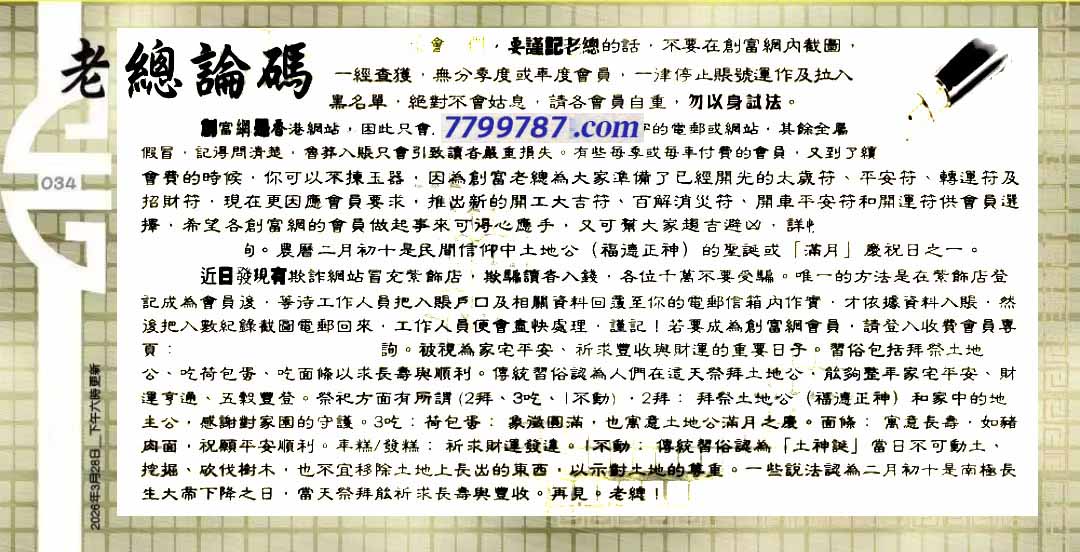 老總論碼
會 們，要謹記老總的話，不要在創富網內截圖，
一經查獲，無分季度或年度會員，一津停止賬號運作及拉入
黑名單，絕對不會姑息，請各會員自重，勿以身試法。
創富網是香港網站，因此只會 7799787.com 的電郵或網站，其餘全屬
假冒，記得問清楚，魯莽入賬只會引致讀者嚴重損失。有些每季或每年付費的會員，又到了續
034
會費的時候，你可以不揀玉器，因為創富老總為大家準備了已經開光的太歲符、平安符、轉運符及
招財符，現在更因應會員要求，推出新的開工大吉符、百解消災符、開車平安符和開運符供會員選
擇，希望各創富網的會員做起事來可得心應手，又可幫大家趨吉避凶，詳
旬。農曆二月初十是民間信仰中土地公（福德正神）的聖誕或「滿月」慶祝日之一。
近日發現有欺詐網站冒充紫飾店，欺騙讀者入錢，各位千萬不要受騙。唯一的方法是在紫飾店登
記成為會員後，等待工作人員把入賬戶口及相關資料回覆至你的電郵信箱內作實，才依據資料入賬，然
後把入數紀錄截圖電郵回來，工作人員便會盡快處理，謹記！若要成為創富網會員，請登入收費會員專
頁： 詢。被視為家宅平安、祈求豐收與財運的重要日子。習俗包括拜祭土地
公、吃荷包蛋、吃面條以求長壽與順利。傳統習俗認為人們在這天祭拜土地公，能夠整年家宅平安、財
運亨通、五穀豐登。祭祀方面有所謂(2拜、3吃、1不動)，2拜：拜祭土地公（福德正神）和家中的地
主公，感謝對家園的守護。3吃：荷包蛋：象徵圓滿，也寓意土地公滿月之慶。面條：寓意長壽，如豬
肉面，祝願平安順利。年糕/發糕：祈求財運發達。1不動：傳統習俗認為「土神誕」當日不可動土、
挖掘、砍伐樹木，也不宜移除土地上長出的東西，以示對土地的尊重。一些說法認為二月初十是南極長
生大帝下降之日，當天祭拜能祈求長壽與豐收。再見。老總！
2026年3月28日__下午六時更新